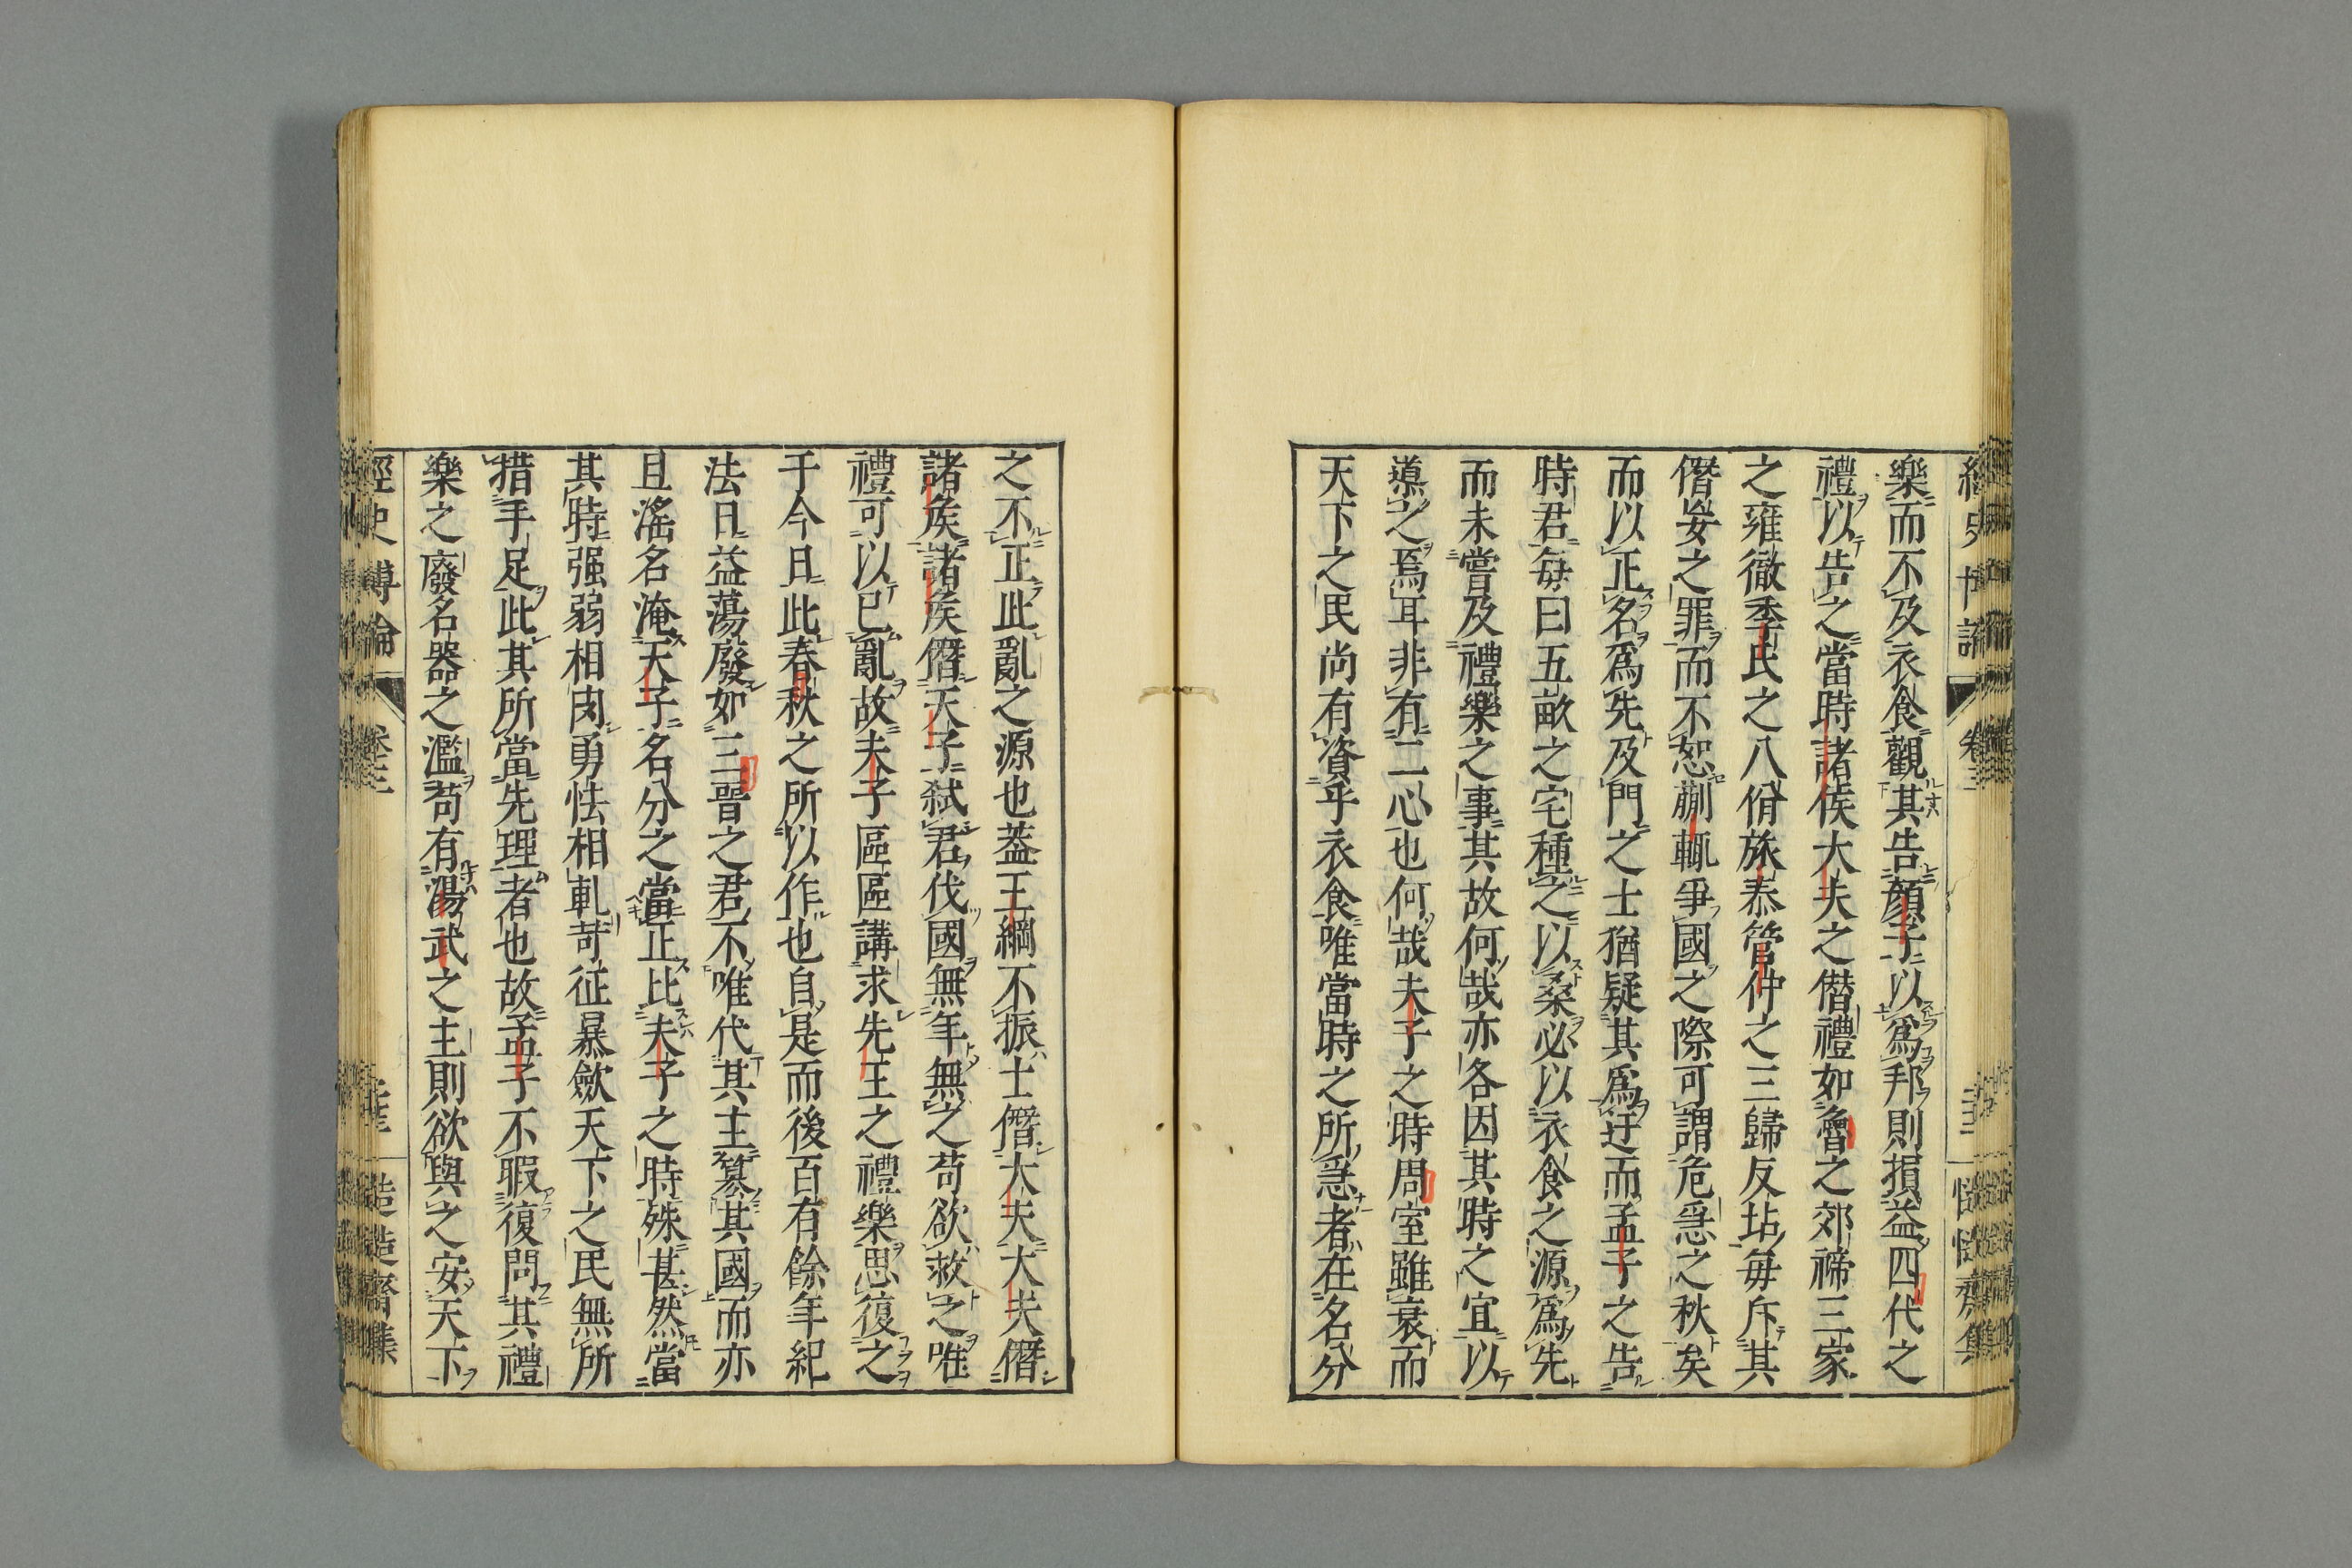 樂而不及衣食觀其告顏子以爲邦則損益四代之
禮以告之當時諸侯大夫之僣禮如魯之郊禘三家
之雍徹季氏之八佾旅泰管仲之三歸反坫每斥其
僭妄之罪而不恕蒯輒爭國之際可謂危急之秋矣
而以正名爲先及門之士猶疑其爲迂而孟子之告
時君每曰五畝之宅種之以桑必以衣食之源爲先
而未嘗及禮樂之事其故何哉亦各因其時之宜以
導之焉耳非有二心也何哉夫子之時周室雖衰而
天下之民尚有資乎衣食唯當時之所急者在名分
之不正此亂之源也蓋王綱不振士僭大夫大夫僭
諸侯諸侯僭天子弑君伐國無年無之苟欲救之唯
禮可以已亂故夫子區區講求先王之禮樂思復之
于今日此春秋之所以作也自是而後百有餘年紀
法日益蕩廢如三晋之君不唯代其主簒其國而亦
且滛名淹天子名分之當正比夫子之時殊甚然當
其時强弱相肉勇怯相軋苛征暴斂天下之民無所
措手足此其所當先理者也故孟子不暇復問其禮
樂之廢名器之濫苟有湯武之主則欲與之安天下
經史博論 卷三 慥慥齋集